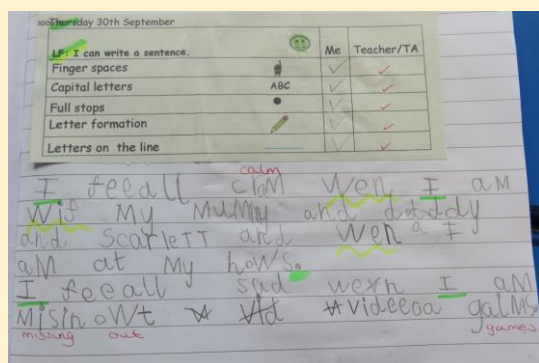 Thursday 30th September
LF: I can write a sentence. Me Teacher/TA
Finger spaces
Capital letters ABC
Full stops
Letter formation
Letters on the line
calm
I feeall clam wen I aM
Wif My MuMMy and daddy
and Scarlett and wen I
aM at My howS.
I feeall sad wexn I aM
MiSin owt videeoa galMS
missing out games